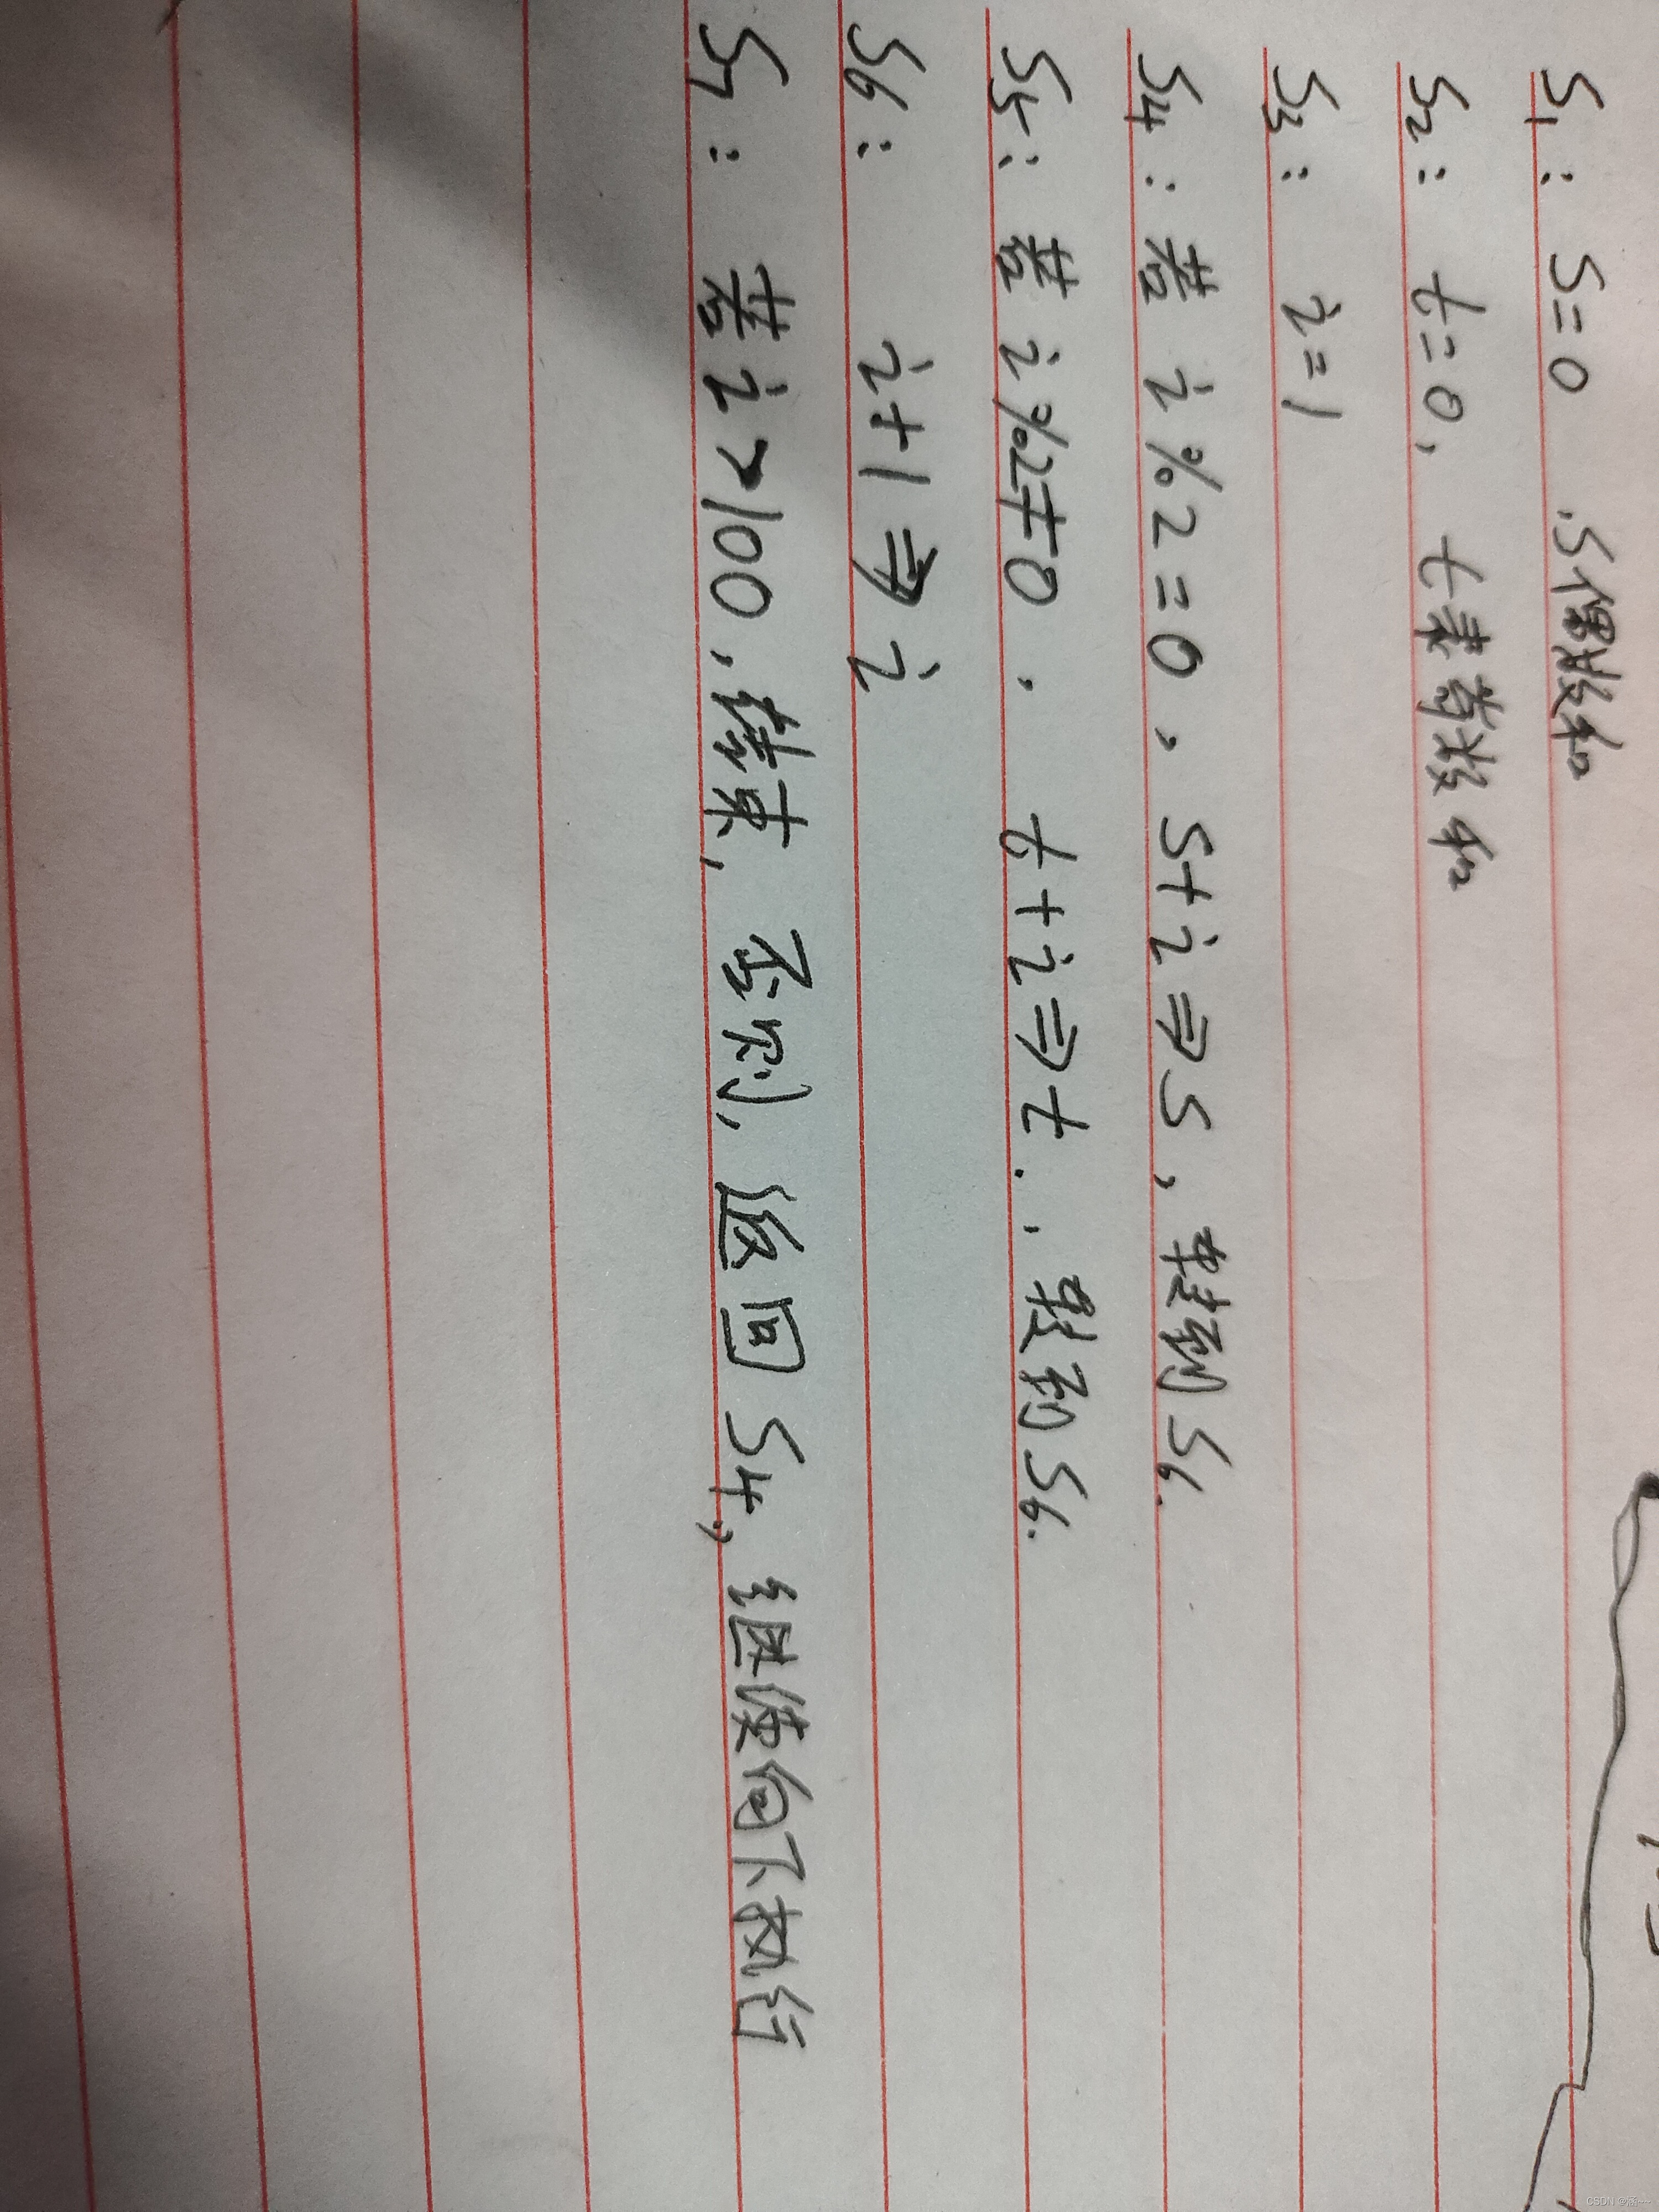 S1: S=0 .S偶数和
S2: t=0, t表奇数和
S3: i=1
S4: 若 i%2=0, S+i⇒S, 转到S6.
S5: 若 i%2≠0, t+i⇒t., 转到S6.
S6: i+1⇒i
S7: 若i>100,结束,否则,返回S4,,继续向下执行